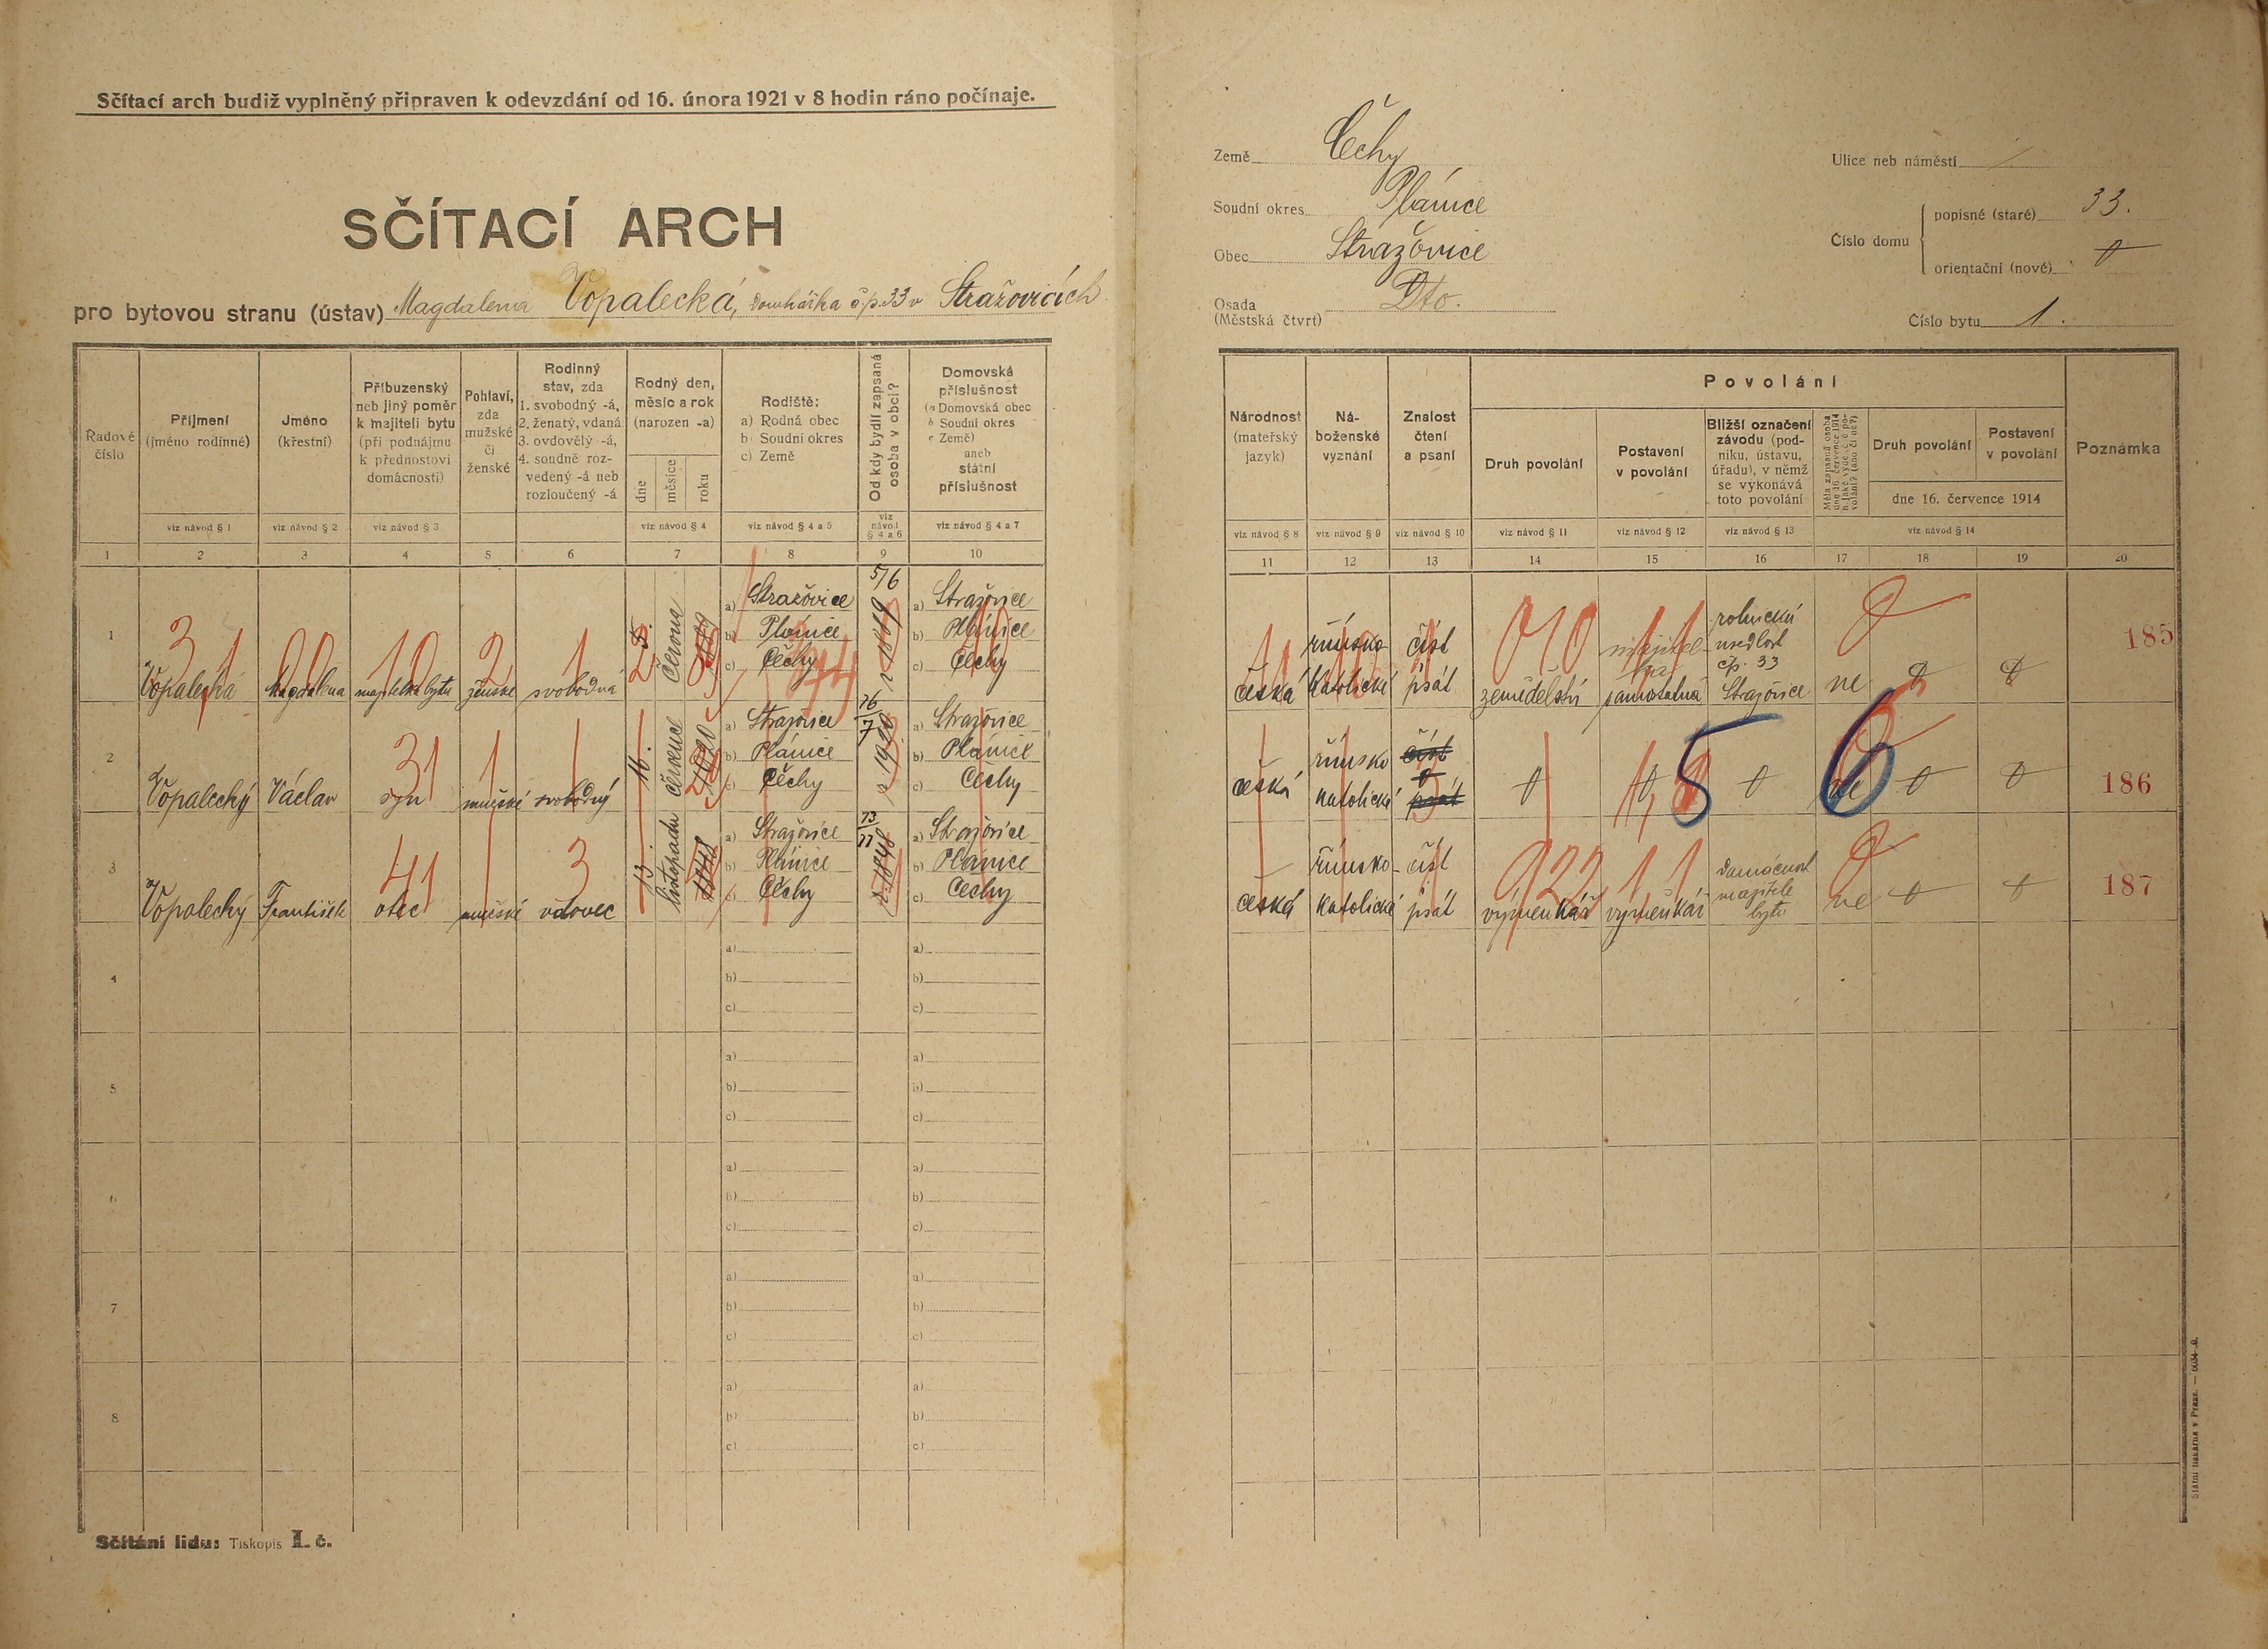 Sčítací arch budiž vyplněný připraven k odevzdání od 16. února 1921 v 8 hodin ráno počínaje.
SČÍTACÍ ARCH
pro bytovou stranu (ústav) Magdalena Vopalecká, domkářka č.p. 33 v Stražovicích.
Země Čechy
Soudní okres Plánice
Obec Stražovice
Osada (Městská čtvrt) Dto.
Ulice neb náměstí /
Číslo domu
popisné (staré) 33.
orientační (nové) 0
Číslo bytu 1.
Řadové číslo
Příjmení (jméno rodinné)
Jméno (křestní)
Příbuzenský neb jiný poměr k majiteli bytu (při podnájmu k přednostovi domácnosti)
Pohlaví, zda mužské či ženské
Rodinný stav, zda 1. svobodný -á, 2. ženatý, vdaná 3. ovdovělý -á, 4. soudně rozvedený -á neb rozloučený -á
Rodný den, měsíc a rok (narozen -a)
dne měsíce roku
Rodiště: a) Rodná obec b) Soudní okres c) Země
Od kdy bydlí zapsaná osoba v obci?
Domovská příslušnost (a Domovská obec b Soudní okres c Země) aneb státní příslušnost
viz návod § 1 viz návod § 2 viz návod § 3 viz návod § 4 viz návod § 4 a 5 viz návod § 4 a 6 viz návod § 4 a 7
1 2 3 4 5 6 7 8 9 10
Národnost (mateřský jazyk)
Náboženské vyznání
Znalost čtení a psaní
Povolání
Druh povolání
Postavení v povolání
Bližší označení závodu (podniku, ústavu, úřadu), v němž se vykonává toto povolání
Druh povolání
Postavení v povolání
dne 16. července 1914
Poznámka
viz návod § 8 viz návod § 9 viz návod § 10 viz návod § 11 viz návod § 12 viz návod § 13 viz návod § 14
11 12 13 14 15 16 17 18 19 20
1 Vopalecká Magdalena majitelka bytu ženské svobodná 5. června
a) Stražovice b) Plánice c) Čechy
5/6
a) Stražovice b) Plánice c) Čechy
česká římsko katolické číst psát zemědělství samostatná rolnická usedlost čp. 33 Stražovice ne 0 0 185
2 Vopalecký Václav syn mužské svobodný 16. července
a) Stražovice b) Plánice c) Čechy
16/7
a) Stražovice b) Plánice c) Čechy
česká římsko katolické číst 0 psát 0 0 0 0 186
5 6
3 Vopalecký František otec mužské vdovec 13. listopadu 1848
a) Stražovice b) Plánice c) Čechy
13/11 1848
a) Stražovice b) Plánice c) Čechy
česká římsko katolické číst psát výměnkář výměnkář domácnost majitele bytu ne 0 0 187
922
4 a) b) c) a) b) c)
5 a) b) c) a) b) c)
6 a) b) c) a) b) c)
7 a) b) c) a) b) c)
8 a) b) c) a) b) c)
Sčítání lidu: Tiskopis I. č.
Státní tiskárna v Praze.